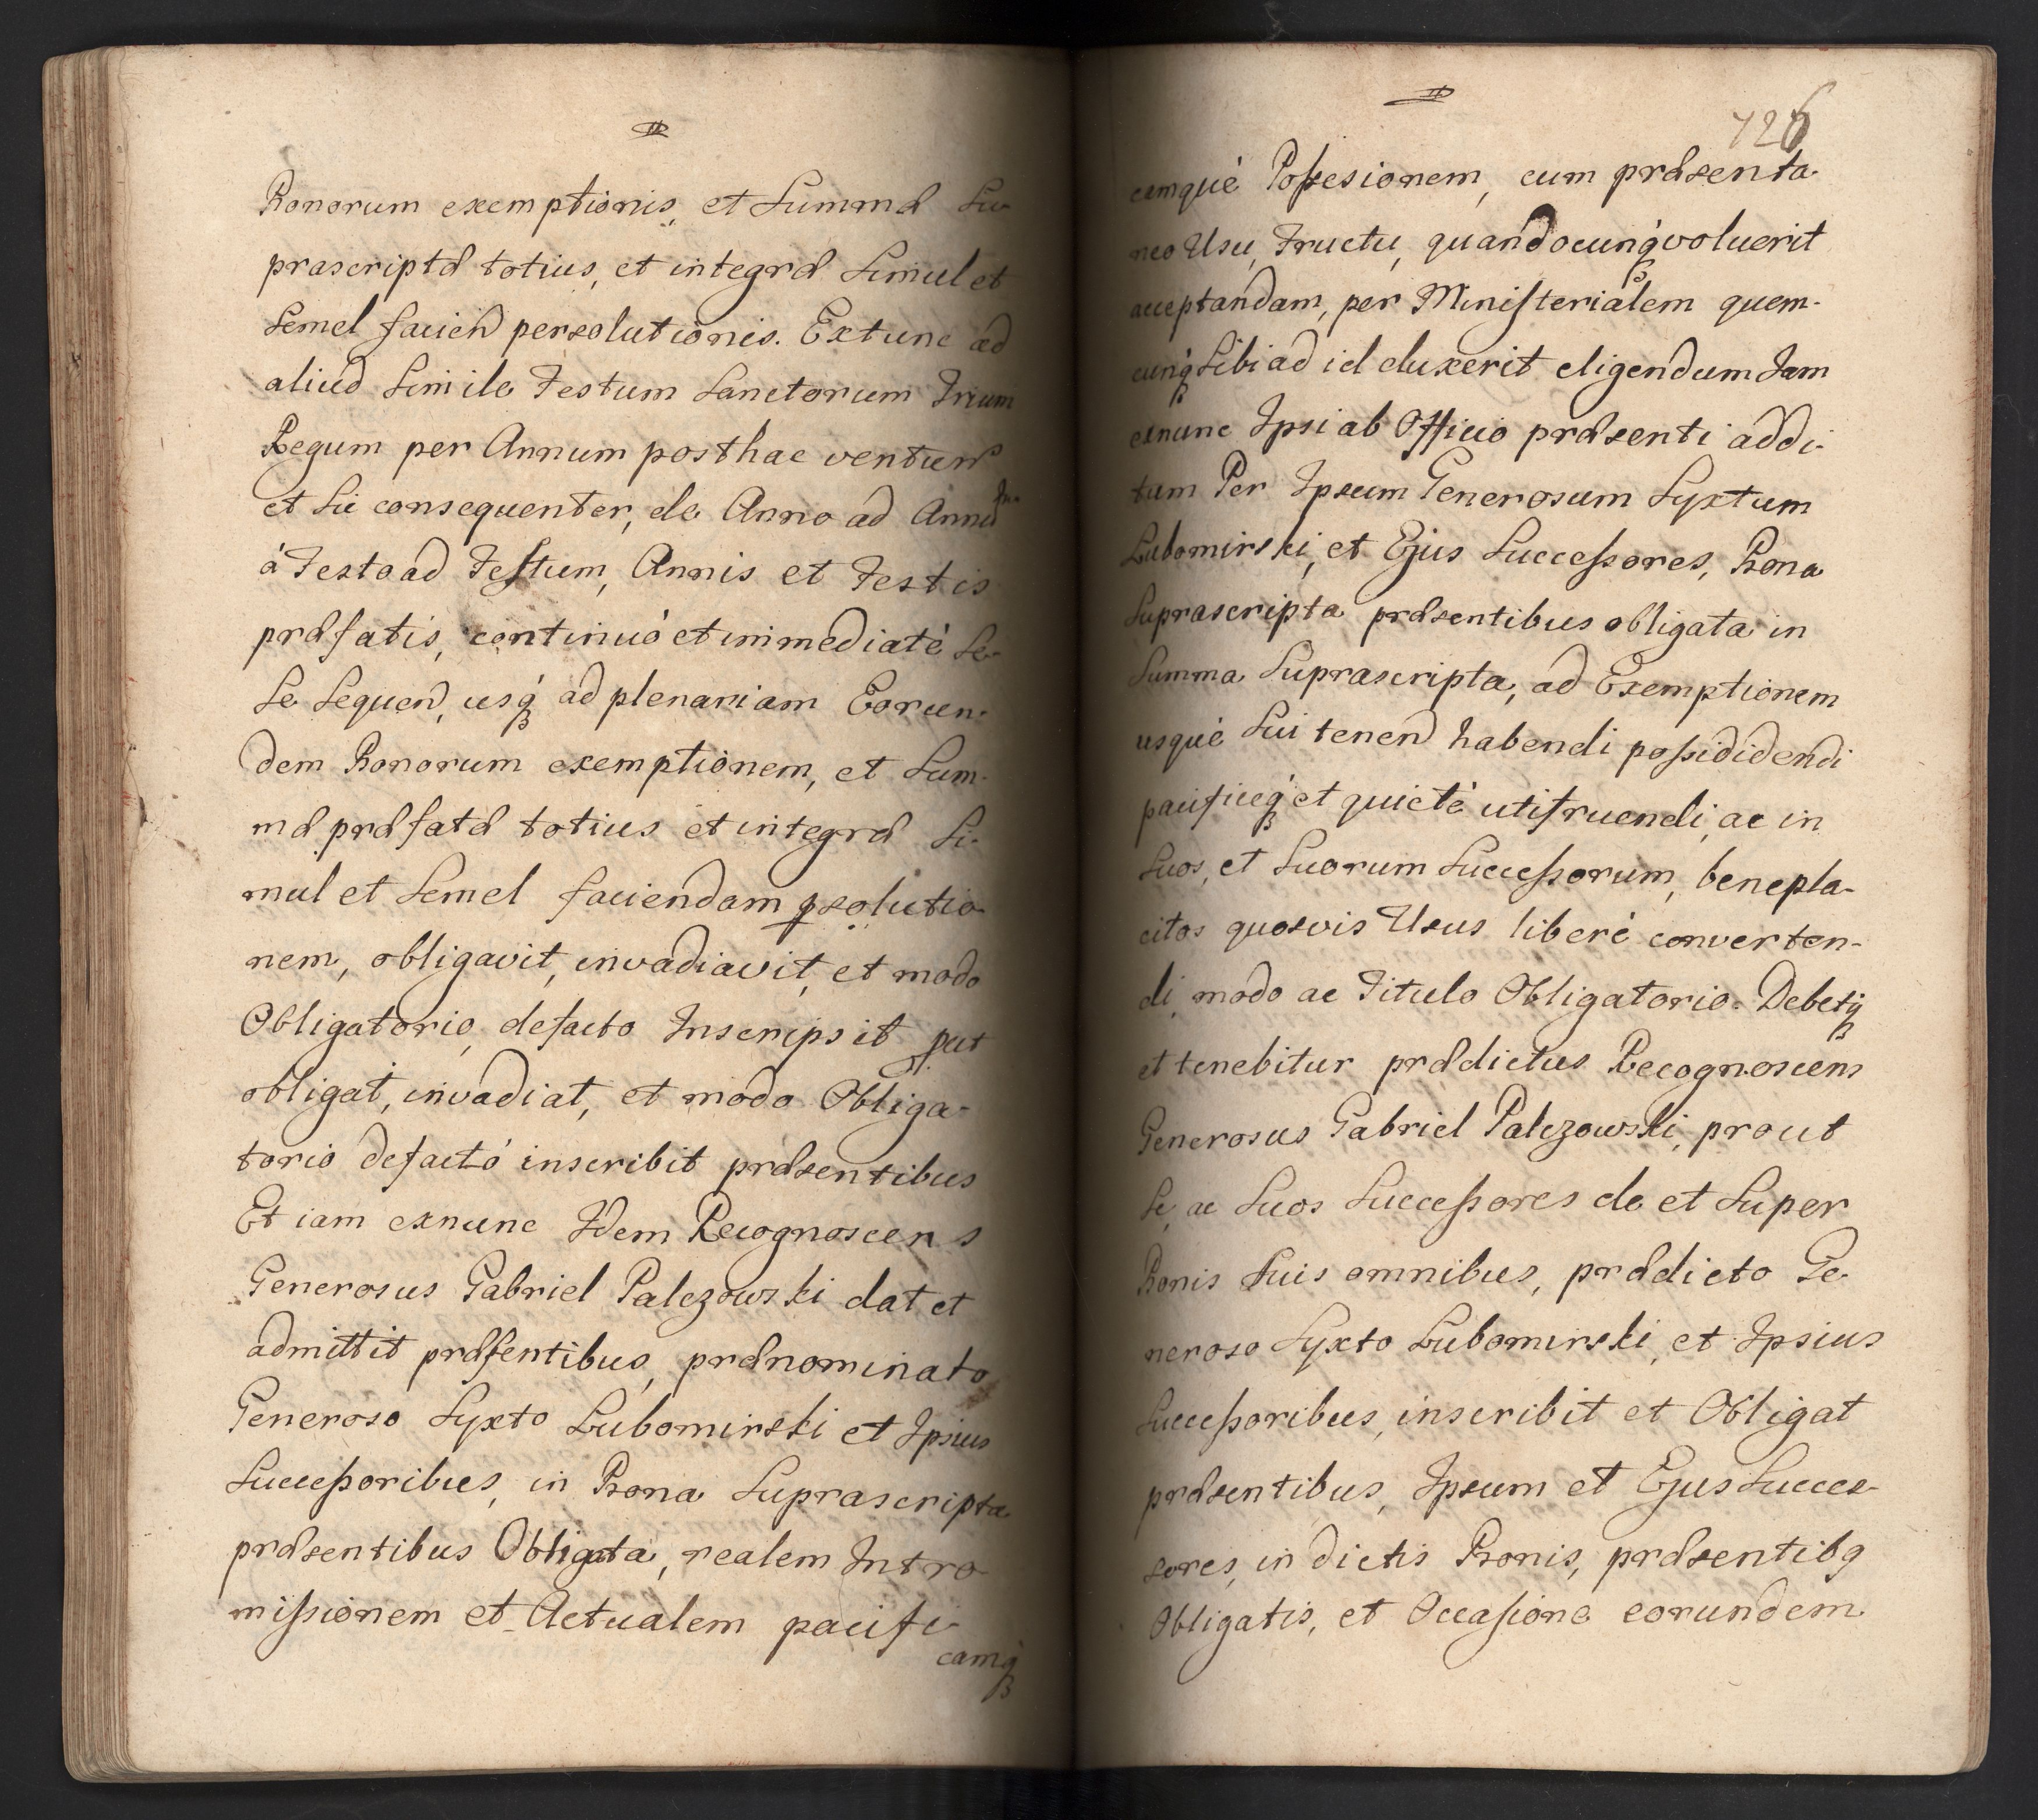 Bonorum exemptionis, et Summæ Su-
prascriptæ totius, et integræ Simul et
Semel faciend persolutionis. Extunc ad
aliud Simile Festum Sanctorum Trium
Regum per Annum posthac ventur
et Sic consequenter, de Anno ad Annu
à Festo ad Festum, Annis et Festis
præfatis, continuò et immediatè Se-
Se Sequend, usq́ ad plenariam Eorun-
dem Bonorum exemptionem, et Sum-
mæ præfatæ totius et integræ Si-
mul et Semel faciendam psolutio-
nem, obligavit, invadiavit, et modo
Obligatorio, defacto Inscripsit put
obligat, invadiat, et modo Obliga-
torio defactó inscribit præsentibus
Et iam exnunc Idem Recognoscens
Generosus Gabriel Palczowski dat et
admittit præsentibus, prænominato
Generoso Syxto Lubomirski et Ipsius
Successoribus, in Bona Suprascripta
præsentibus Obligata, realem Intro-
missionem et Actualem pacifi-
camq́
126
camquè Possesionem, cum præsenta-
neo Usu, Fructu, quandocunq́ voluerit
acceptandam, per Ministerialem quem-
cunq́ Sibi ad id duxerit eligendum Iam
exnunc Ipsi ab Officio præsenti addi-
tum Per Ipsum Generosum Syxtum
Lubomirski, et Ejus Successores, Bona
Suprascripta præsentibus obligata in
Summa Suprascripta, ad Exemptionem
usquè Sui tenend habendi possididendi
pacificeq́ et quietè utifruendi, ac in
Suos, et Suorum Successorum, benepla-
citos quosvis Usus liberè converten-
di, modo ac Titulo Obligatorio. Debetq́
et tenebitur prædictus Recognoscens
Generosus Gabriel Palczowski, prout
Se, ac Suos Successores de et Super
Bonis Suis omnibus, prædicto Ge-
neroso Syxto Lubomirski, et Ipsius
Successoribus, inscribit et Obligat
præsentibus, Ipsum et Ejus Succes-
sores, in dictis Bonis, præsentibq
Obligatis, et Occasione eorundem